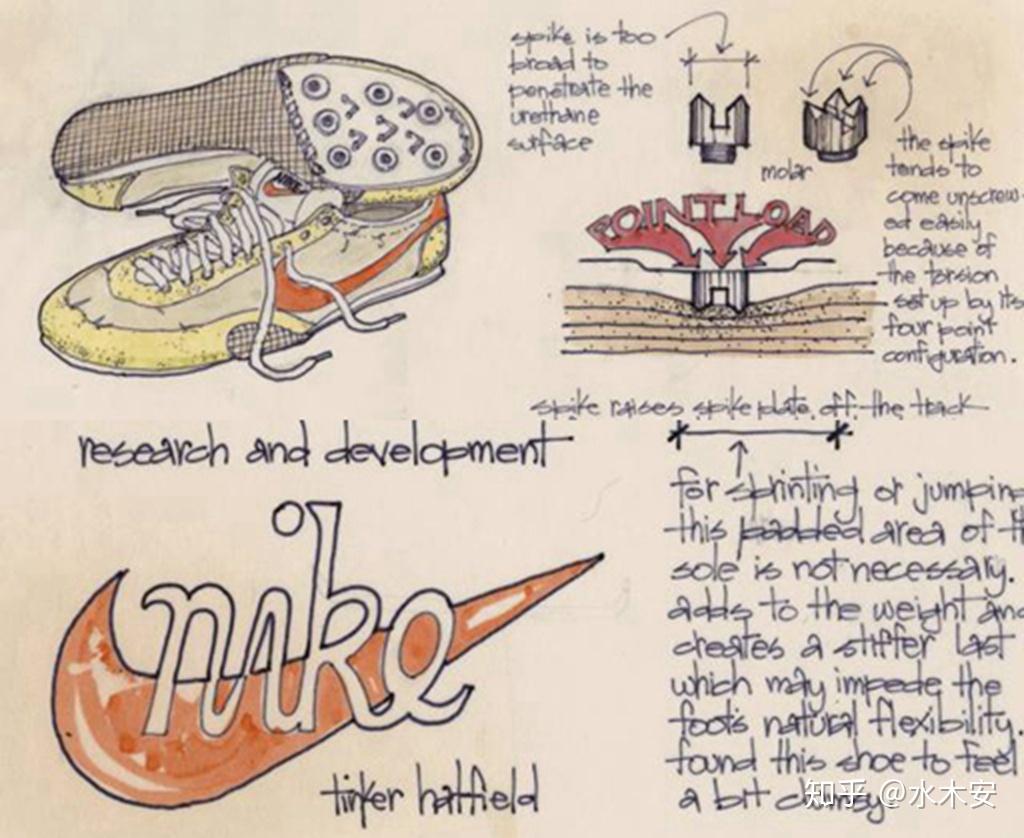 spike is too
broad to
penetrate the
urethane
surface
molar
the spike
tends to
come unscrew-
ed easily
because of
the torsion
set up by its
four point
configuration.
POINT LOAD
spike raises spike plate off the track
research and development
nike
tinker hatfield
for sprinting or jumping
this padded area of th
sole is not necessary.
adds to the weight and
creates a stiffer last
which may impede the
foot's natural flexibility.
found this shoe to feel
a bit clumsy.
知乎 @水木安